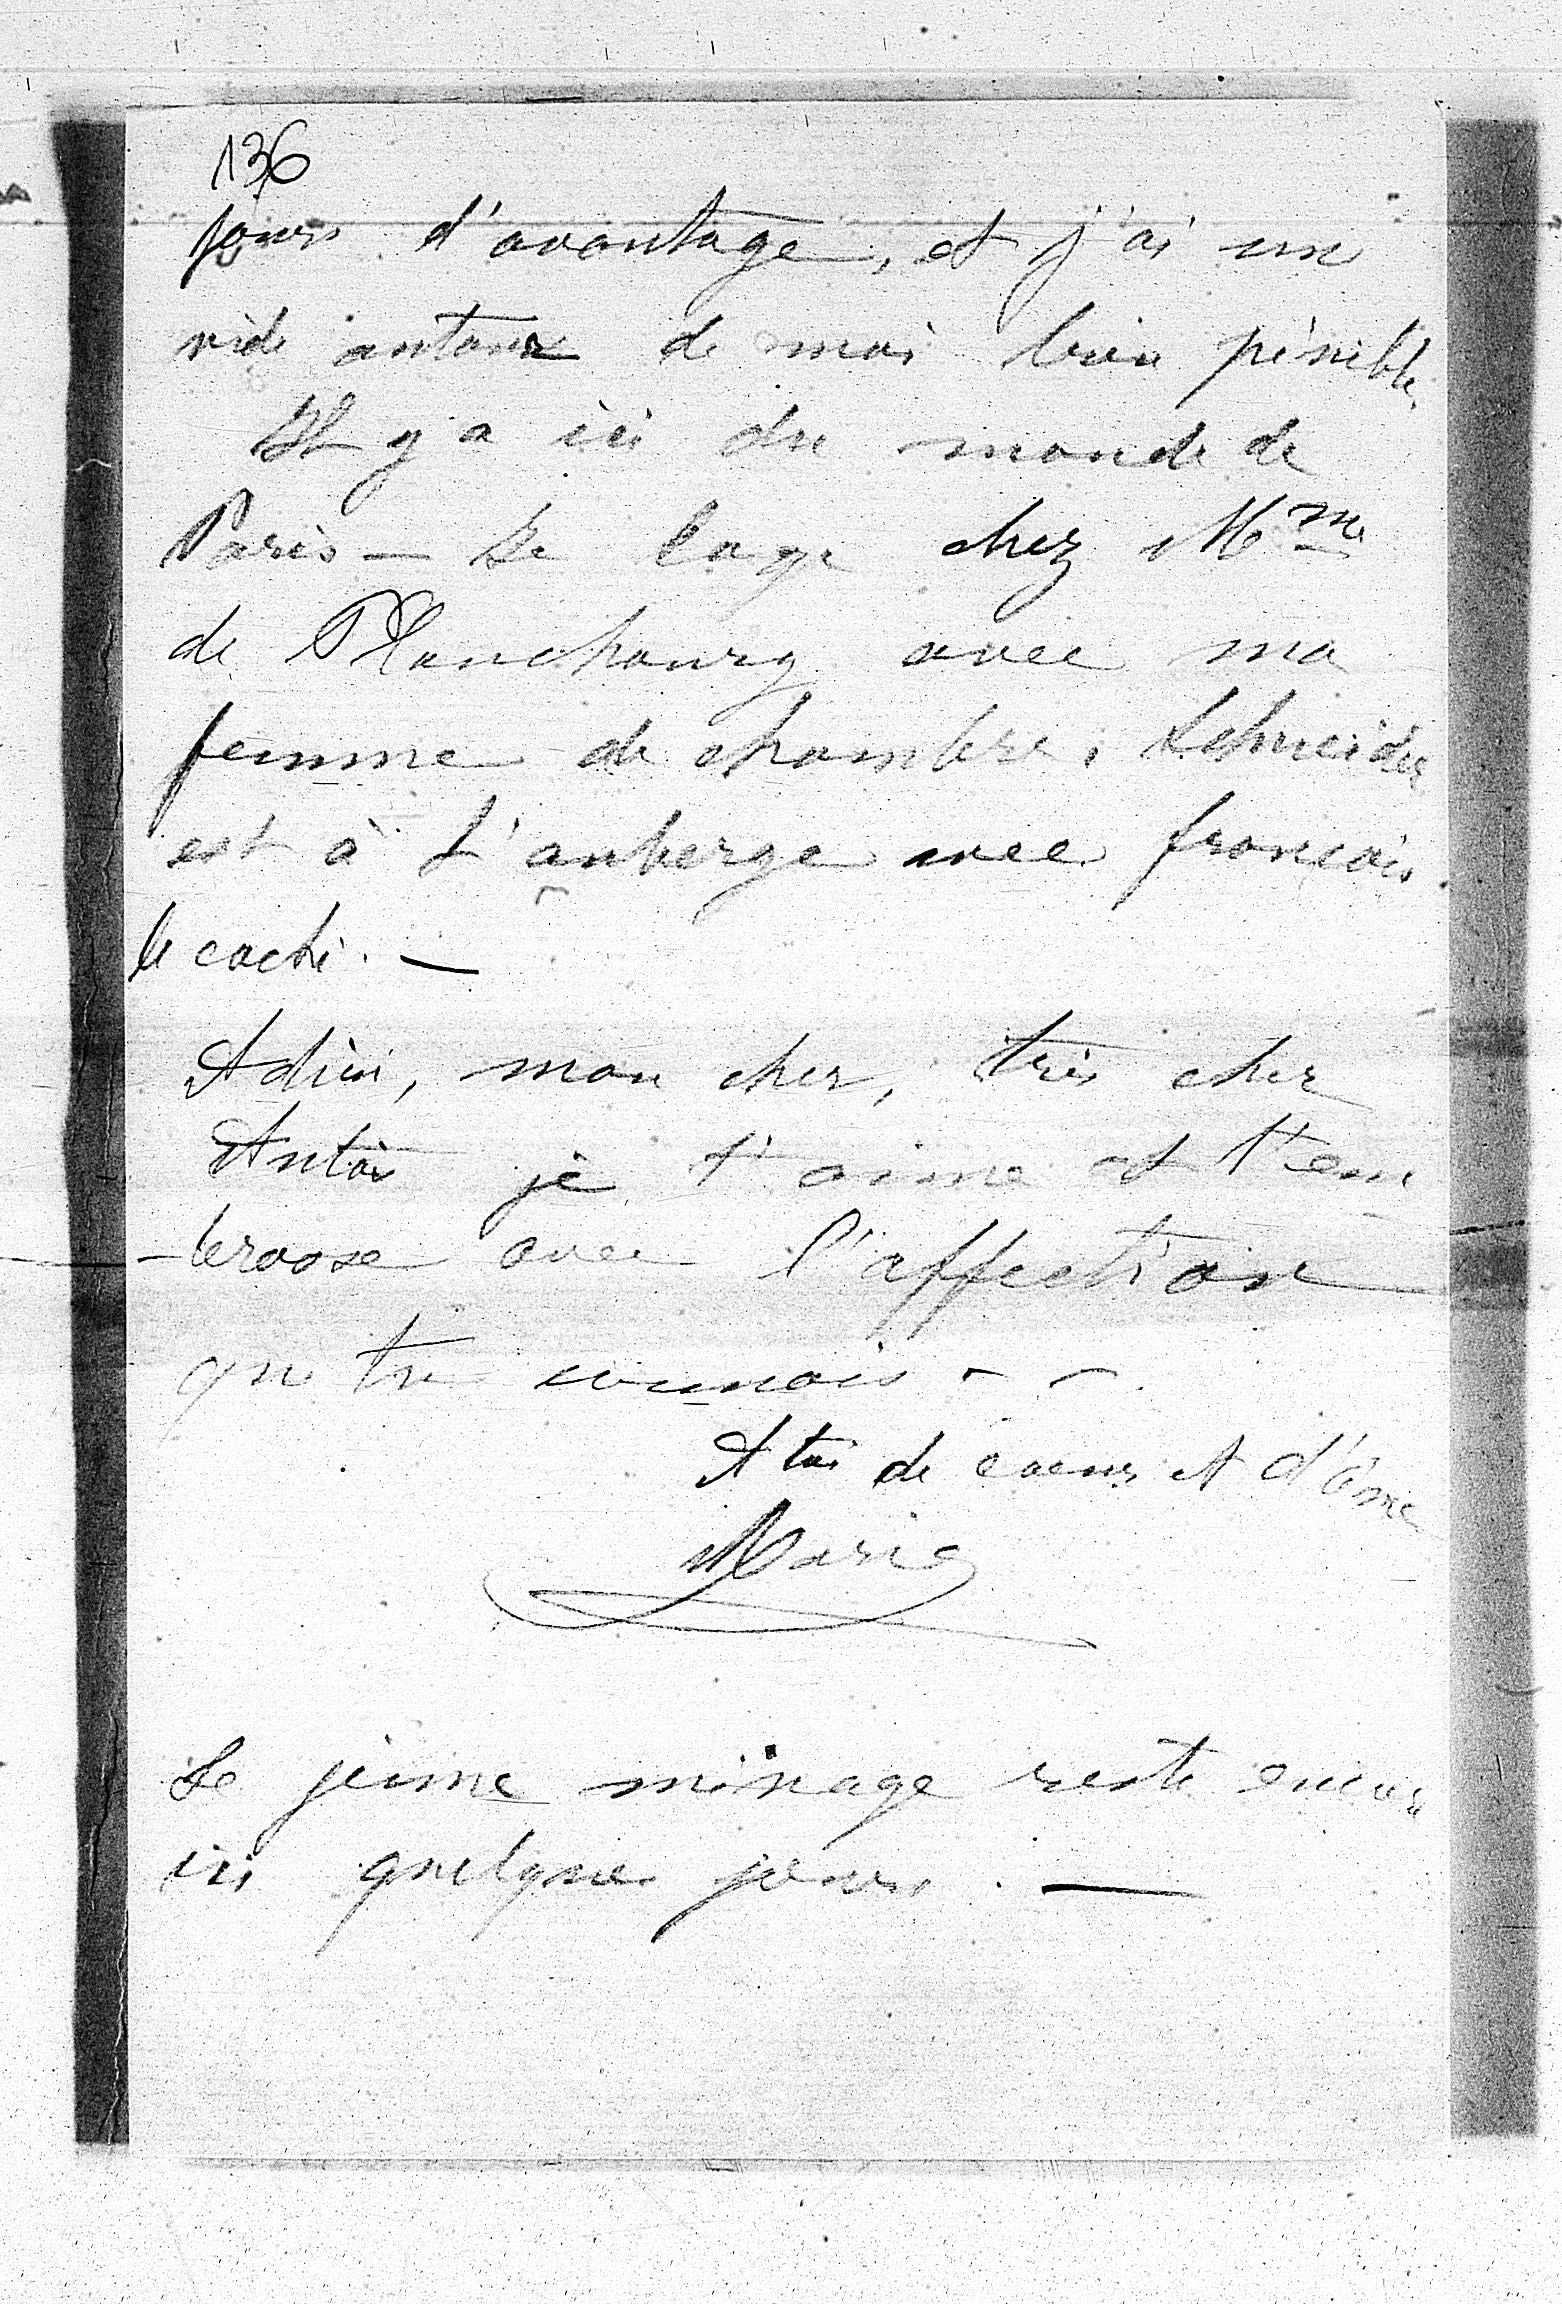 136
jours d'avantage, et j'ai un
vide autour de moi bien pénible.
Il y a ici du monde de
Paris — Je loge chez Mme
de avec ma
femme de chambre, Schneider
est à L'auberge avec françois
le coché. —
Adieu, mon cher, très cher
Antoi je t'aime et t'em
-brasse avec l'affection
que tu connais - -
A toi de coeur et d'âme
Marie
Le jeune ménage reste encore
ici quelques jours. —